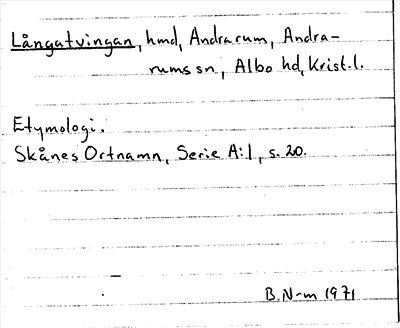 Långatvingan, hmd, Andrarum, Andra-
rums sn, Albo hd, Krist.l.
Etymologi.
Skånes Ortnamn, Serie A:1, s. 20.
B.N-m 1971